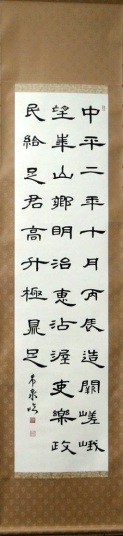 中平二年十月丙辰造闕嵯峨
望華山鄉明治惠沾渥吏樂政
民給足君高升極鼎足